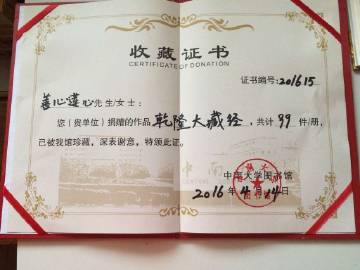 收藏证书
CERTIFICATE OF DONATION
证书编号:201615
善心莲心先生/女士:
您(贵单位)捐赠的作品乾隆大藏经,共计99件/册,
已被我馆珍藏,深表谢意,特颁此证。
中南大学图书馆
2016年4月14日